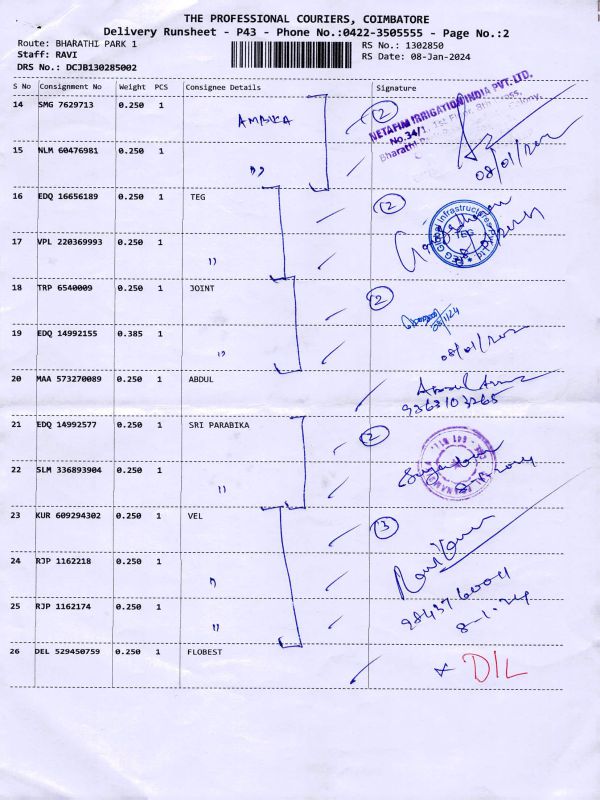 THE PROFESSIONAL COURIERS, COIMBATORE
Delivery Runsheet - P43 - Phone No.:0422-3505555 - Page No.:2
Route: BHARATHI PARK 1
RS No.: 1302850
Staff: RAVI
RS Date: 08-Jan-2024
DRS No.: DCJB130285002
S No Consignment No Weight PCS Consignee Details Signature
14 SMG 7629713 0.250 1 AMBIKA (2)
NETAFIM IRRIGATION INDIA PVT. LTD.
No.34/1, 1st Floor, 8th Cross,
Bharathi
15 NLM 60476981 0.250 1 "
16 EDQ 16656189 0.250 1 TEG (2)
TEG Global Infrastructures Pvt Ltd
TEG
17 VPL 220369993 0.250 1 "
18 TRP 6540009 0.250 1 JOINT (2)
08/1/24
19 EDQ 14992155 0.385 1 "
20 MAA 573270089 0.250 1 ABDUL
9363103265
21 EDQ 14992577 0.250 1 SRI PARABIKA (2)
22 SLM 336893904 0.250 1 "
23 KUR 609294302 0.250 1 VEL (3)
24 RJP 1162218 0.250 1 "
9843760004
25 RJP 1162174 0.250 1 "
8-1-24
26 DEL 529450759 0.250 1 FLOBEST
DIL